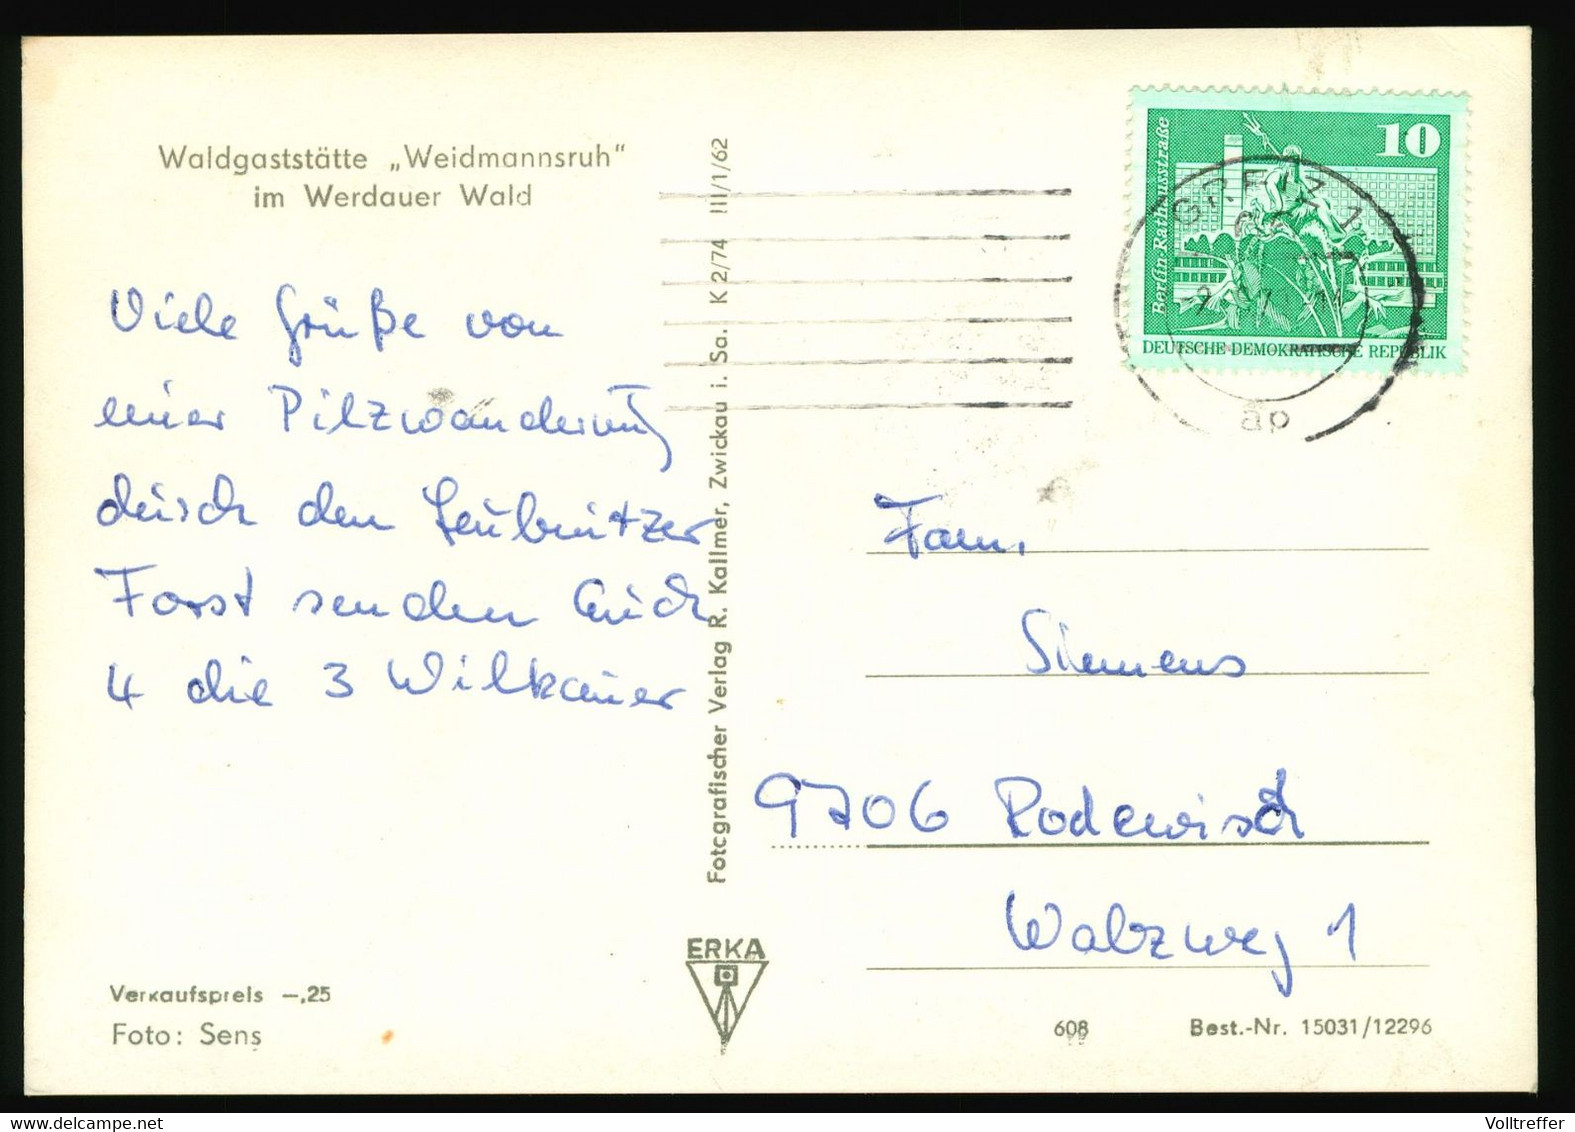 Waldgaststätte „Weidmannsruh“
im Werdauer Wald
Viele Grüße von
einer Pilzwanderung
durch den Leubnitzer
Forst senden Euch
4 die 3 Wilkauer
Verkaufspreis —,25
Foto: Sens
Fotografischer Verlag R. Kallmer, Zwickau i. Sa. K 2/74 III/1/62
ERKA
10
Berlin·Rathausstraße
DEUTSCHE DEMOKRATISCHE REPUBLIK
GREIZ 1
ap
Fam.
Siemens
9706 Rodewisch
Walzweg 1
608
Best.-Nr. 15031/12296
Volltreffer